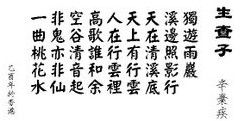 生查子
辛棄疾
獨遊雨巖
溪邊照影行
天在清溪底
天上有行雲
人在行雲裡
高歌誰和余
空谷清音起
非鬼亦非仙
一曲桃花水
乙酉年於香港